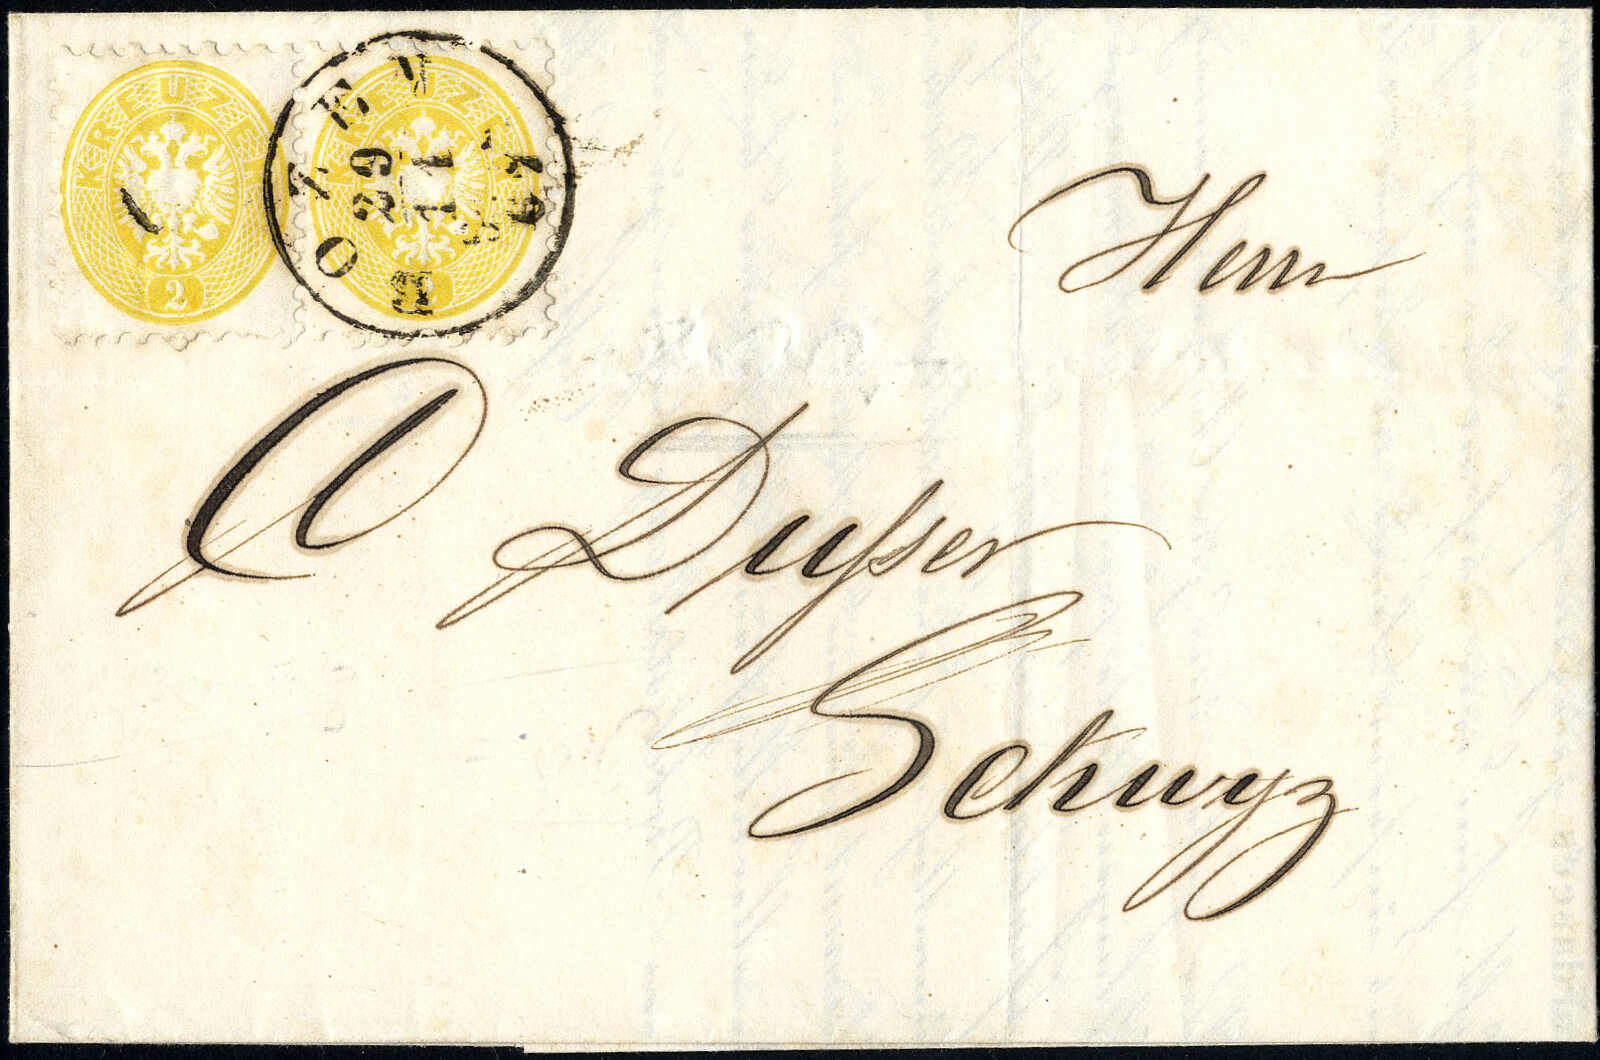 KREUZER
2
KREUZER
2
BOZEN
29
11
Herrn
C Dusser
Schwyz